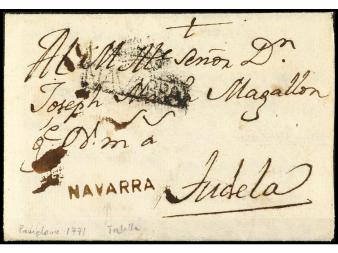 +
Al M. Ille Señor Dn
NAVARRA
Joseph Magallon
Tudela
NAVARRA
Pamplona 1771 Tudela